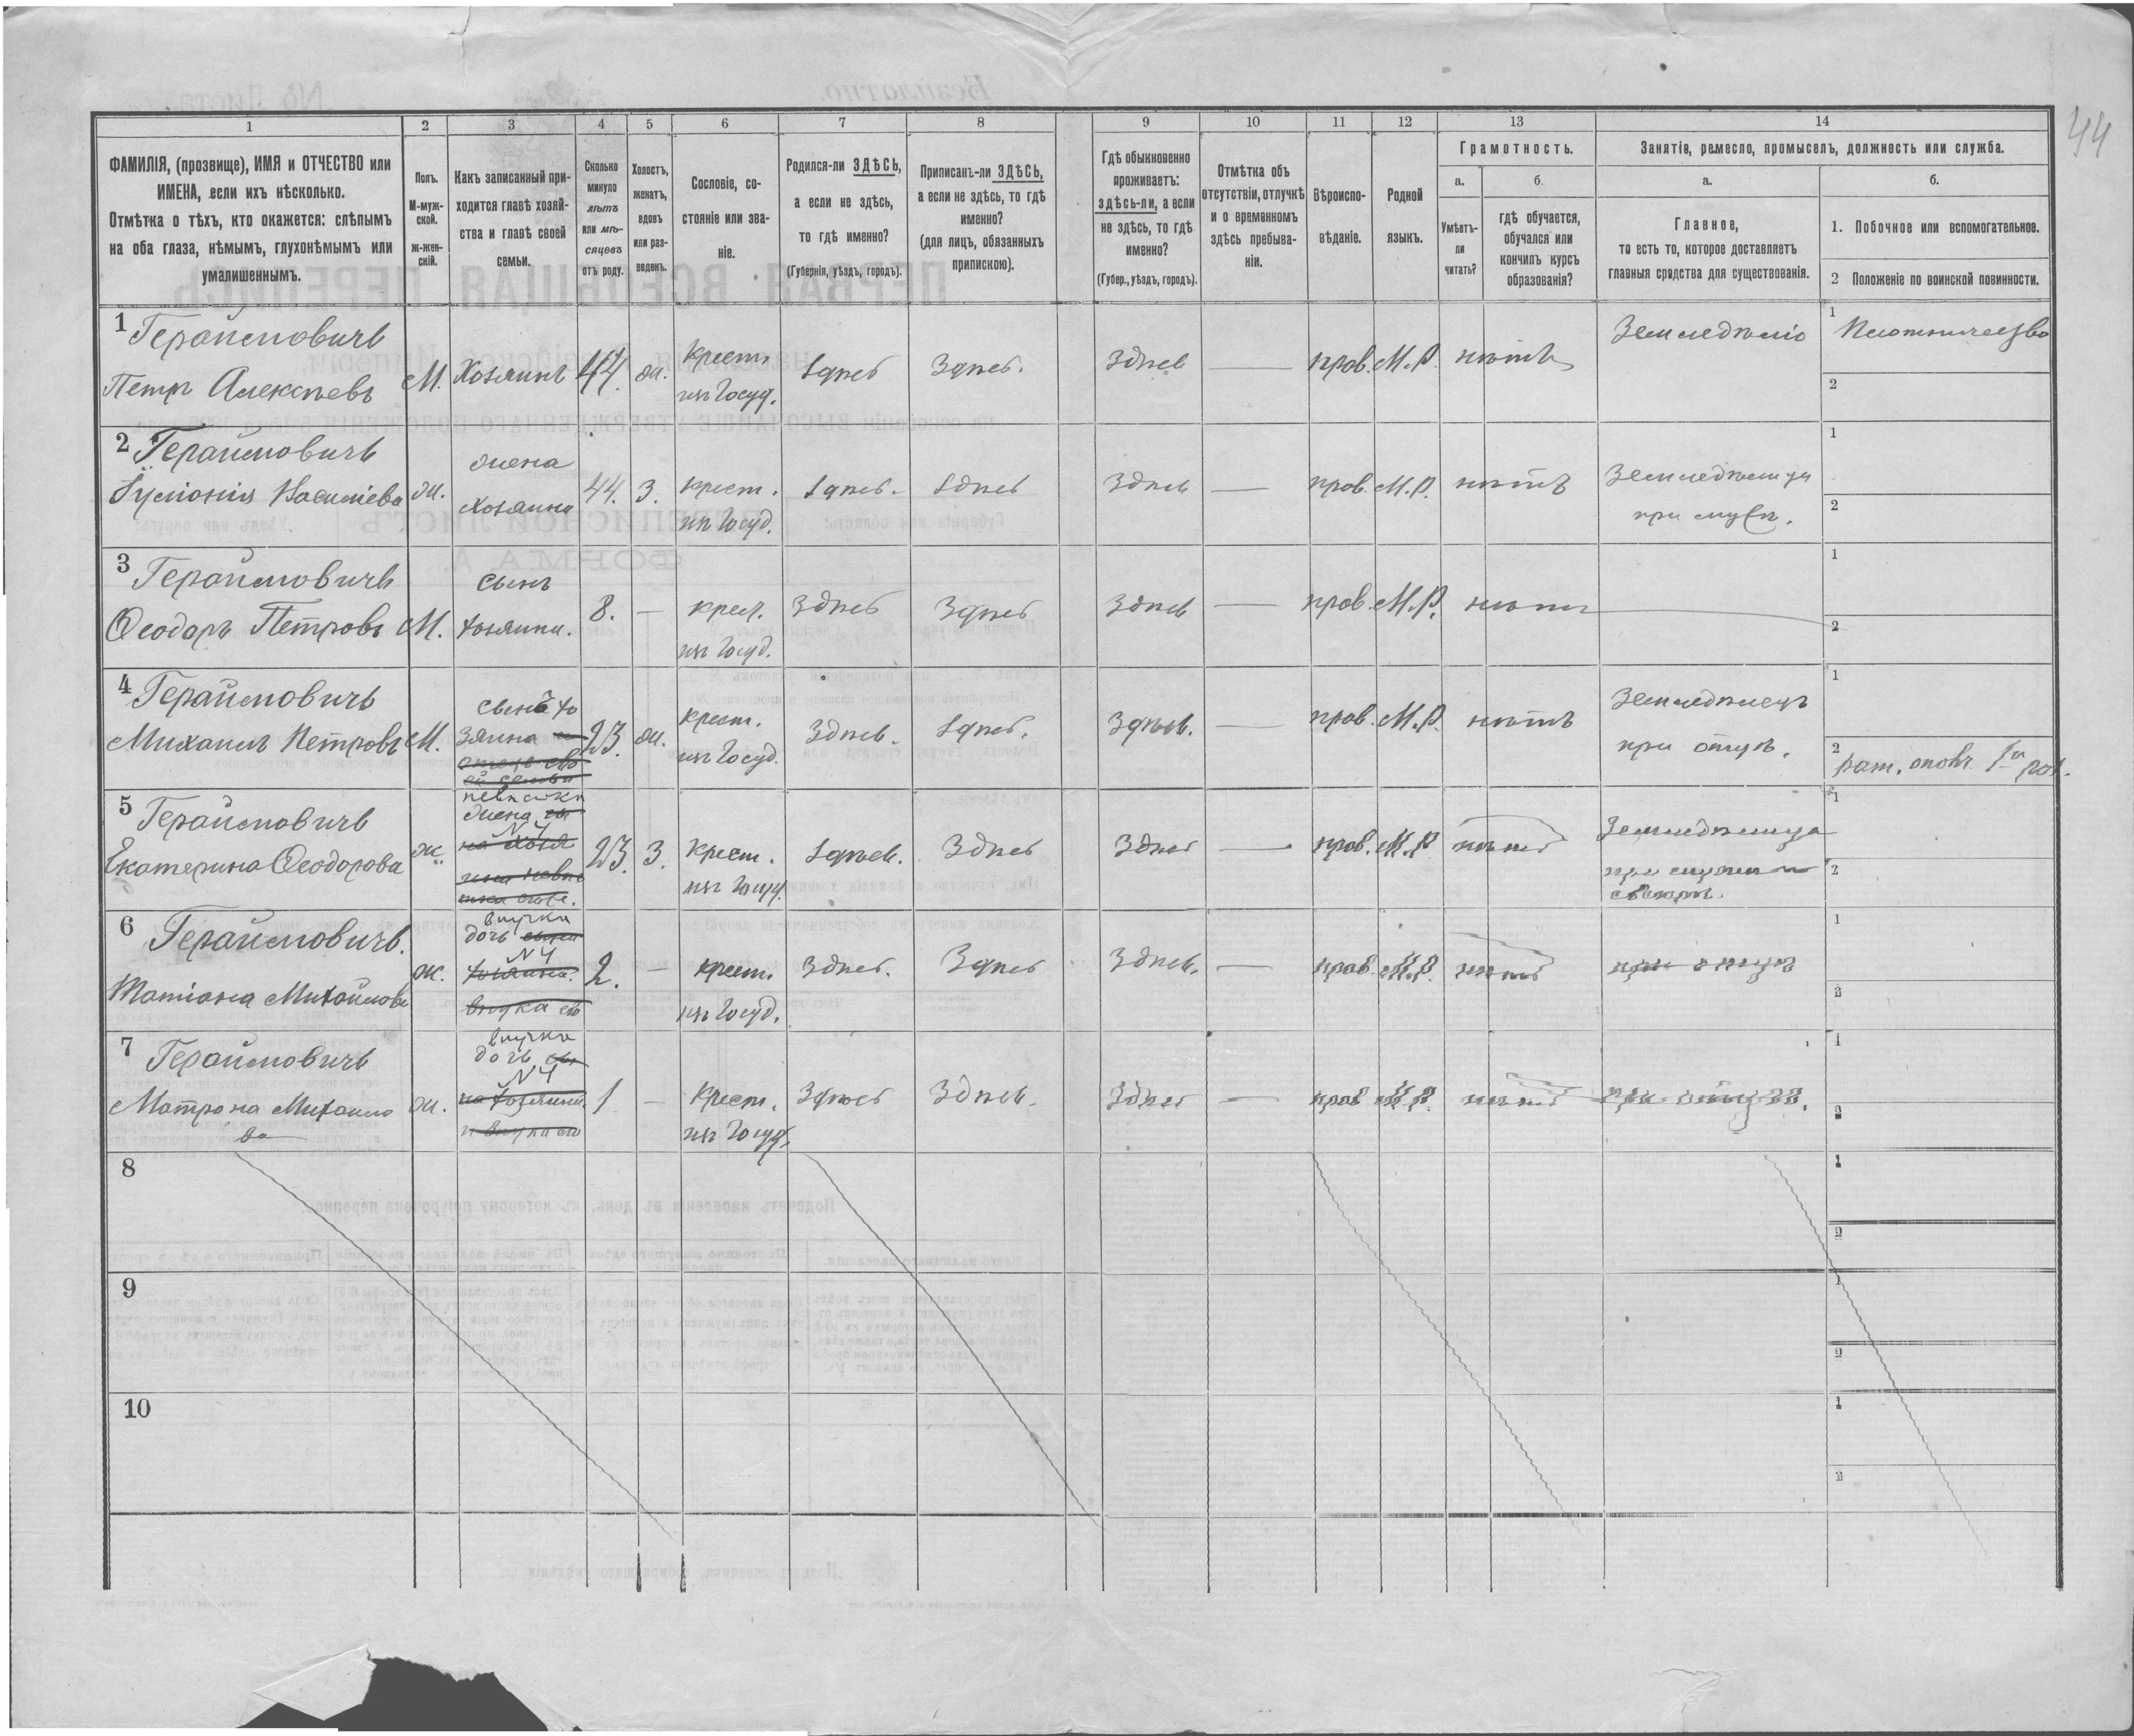 44
1 2 3 4 5 6 7 8 9 10 11 12 13 14
ФАМИЛІЯ, (прозвище), ИМЯ и ОТЧЕСТВО или
ИМЕНА, если ихъ нѣсколько.
Отмѣтка о тѣхъ, кто окажется: слѣпымъ
на оба глаза, нѣмымъ, глухонѣмымъ или
умалишеннымъ.
Полъ.
М-муж-
ской.
ж-жен-
скій.
Какъ записанный при-
ходится главѣ хозяй-
ства и главѣ своей
семьи.
Сколько
минуло
лѣтъ
или мѣ-
сяцевъ
отъ роду.
Холостъ,
женатъ,
вдовъ
или раз-
веденъ.
Сословіе, со-
стояніе или зва-
ніе.
Родился-ли ЗДѢСЬ,
а если не здѣсь,
то гдѣ именно?
(Губернія, уѣздъ, городъ).
Приписанъ-ли ЗДѢСЬ,
а если не здѣсь, то гдѣ
именно?
(для лицъ, обязанныхъ
припискою).
Гдѣ обыкновенно
проживаетъ:
здѣсь-ли, а если
не здѣсь, то гдѣ
именно?
(Губер., уѣздъ, городъ).
Отмѣтка объ
отсутствіи, отлучкѣ
и о временномъ
здѣсь пребыва-
ніи.
Вѣроиспо-
вѣданіе.
Родной
языкъ.
Грамотность.
а.
Умѣетъ-
ли
читать?
б.
гдѣ обучается,
обучался или
кончилъ курсъ
образованія?
Занятіе, ремесло, промыселъ, должность или служба.
а.
Главное,
то есть то, которое доставляетъ
главныя средства для существованія.
б.
1. Побочное или вспомогательное.
2 Положеніе по воинской повинности.
1 Герайловичъ
Петръ Алексѣевъ
М. Хозяинъ 44 ж. крест.
изъ Госуд.
Здѣсь Здѣсь. Здѣсь — прав. М.Р. нѣтъ
1
2
2 Герайловичъ
Василіева
ж. жена
хозяина
44. З. крест.
изъ Госуд.
Здѣсь. Здѣсь Здѣсь — прав. М.Р. нѣтъ
при мужѣ.
1
2
3 Герайловичъ
Ѳеодоръ Петровъ
М. сынъ
хозяина.
8. — крест.
изъ Госуд.
Здѣсь Здѣсь Здѣсь — прав. М.Р. нѣтъ
1
2
4 Герайловичъ
Михаилъ Петровъ
М. сынъ хо
зяина
23. ж. крест.
изъ Госуд.
Здѣсь. Здѣсь. Здѣсь. — прав. М.Р. нѣтъ
Земледѣлецъ
при отцѣ.
1
2
5 Герайловичъ
Екатерина Ѳеодорова
ж. невѣстка
жена
N4
23. З. крест.
изъ Госуд.
Здѣсь. Здѣсь Здѣсь — прав. М.Р. нѣтъ
1
2
6 Герайловичъ.
Татіана Михайлова
ж. внучка
дочь
N4
2. — крест.
изъ Госуд.
Здѣсь. Здѣсь Здѣсь. — прав. М.Р. нѣтъ
при отцѣ
1
2
7 Герайловичъ
Матрона Михаило
ва
ж. внучка
дочь
N4
1 — крест.
изъ Госуд.
Здѣсь Здѣсь. Здѣсь — прав. М.Р. нѣтъ
при отцѣ.
1
2
8
1
2
9
1
2
10
1
2